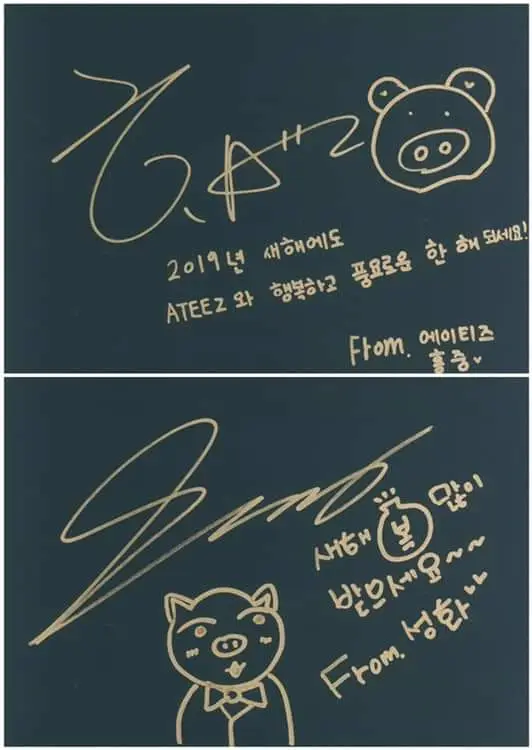 2019년 새해에도
ATEEZ와 행복하고 풍요로운 한 해 되세요!
From. 에이티즈
홍중♥
새해 복 많이
받으세요~~
From. 성화